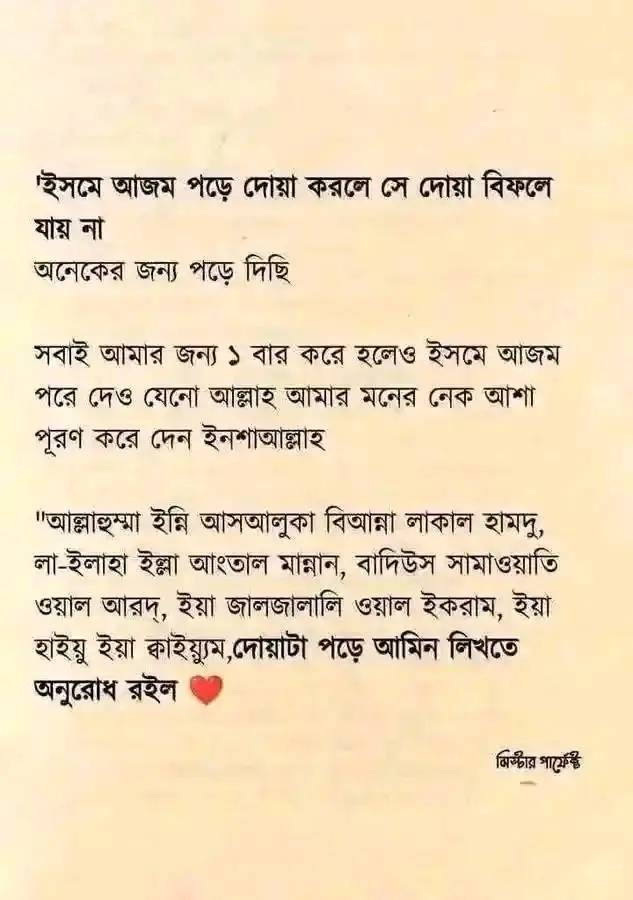 'ইসমে আজম পড়ে দোয়া করলে সে দোয়া বিফলে
যায় না
অনেকের জন্য পড়ে দিছি
সবাই আমার জন্য ১ বার করে হলেও ইসমে আজম
পরে দেও যেনো আল্লাহ আমার মনের নেক আশা
পূরণ করে দেন ইনশাআল্লাহ
"আল্লাহুম্মা ইন্নি আসআলুকা বিআন্না লাকাল হামদু,
লা-ইলাহা ইল্লা আংতাল মান্নান, বাদিউস সামাওয়াতি
ওয়াল আরদ্, ইয়া জালজালালি ওয়াল ইকরাম, ইয়া
হাইয়ু ইয়া ক্বাইয়্যুম,দোয়াটা পড়ে আমিন লিখতে
অনুরোধ রইল ❤️
মিস্টার পার্ফেক্ট